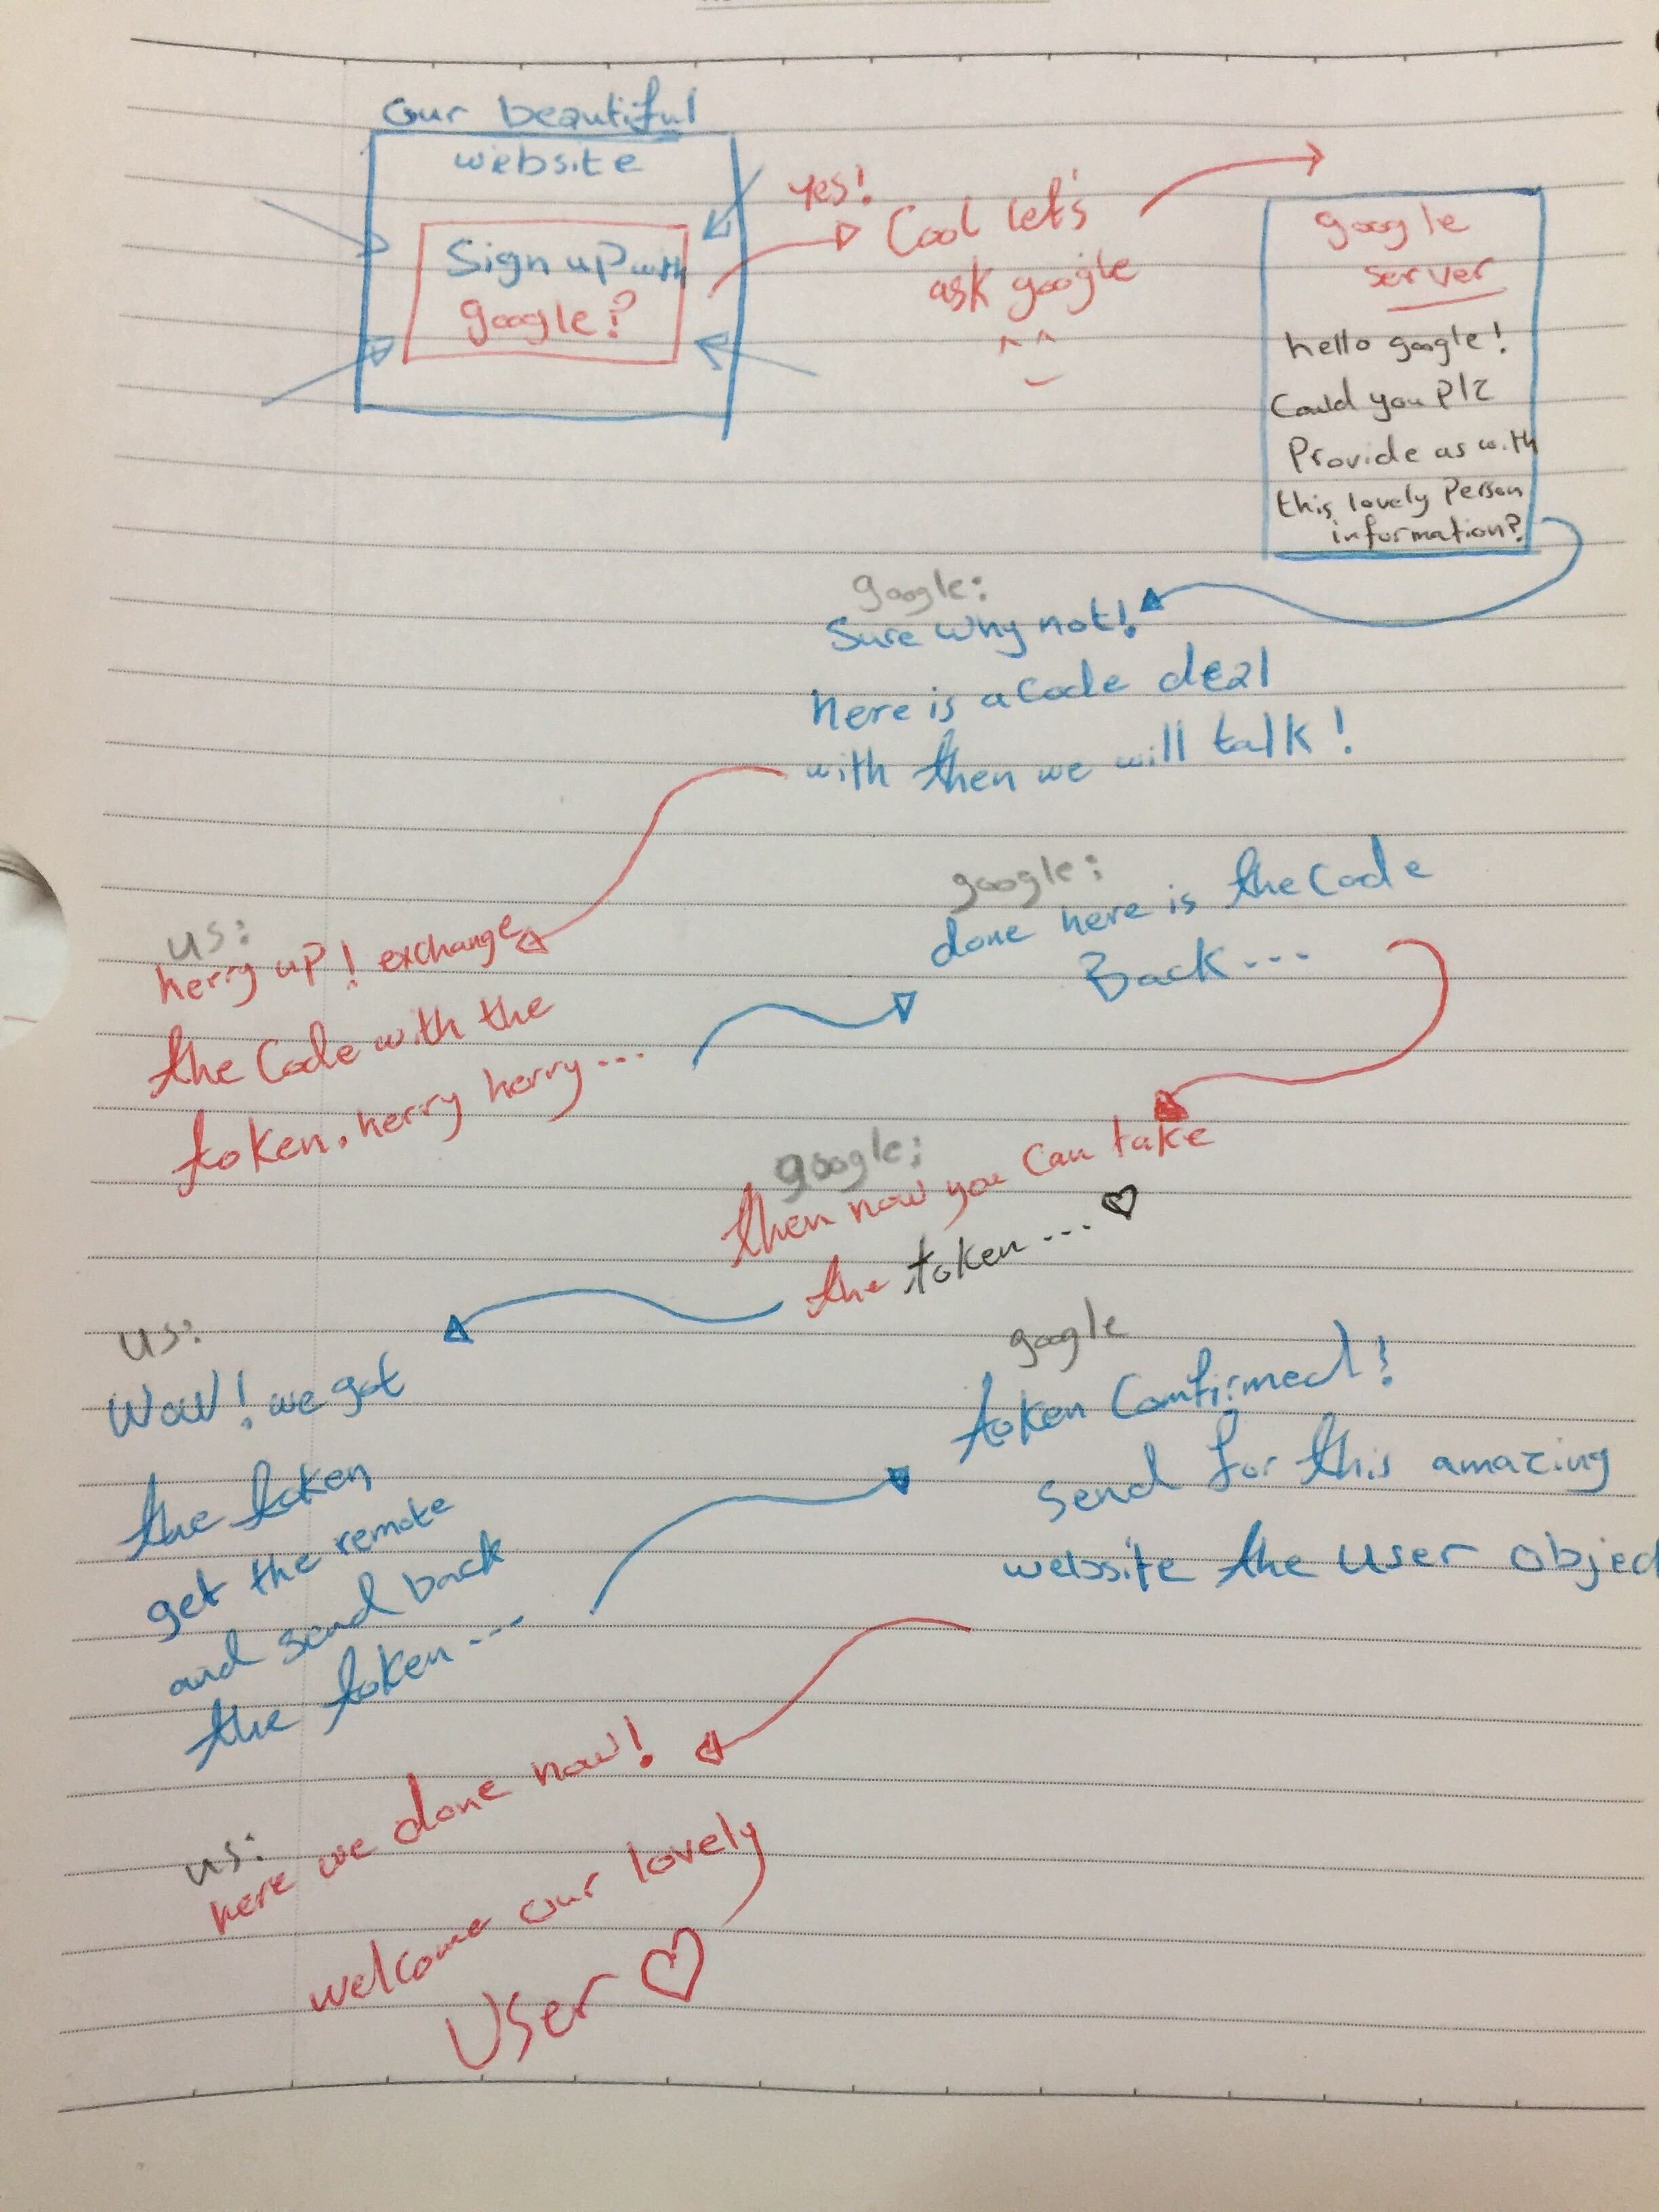 Our beautiful
website
Sign up with
google?
yes!
Cool let's
ask google
google
server
hello google!
Could you plz
Provide as with
this lovely Person
information?
google:
Sure why not!
here is a Code deal
with then we will talk!
us:
herry up! exchange
the Code with the
token. herry herry...
google:
done here is the Code
Back...
google:
then now you can take
the token... ♡
us:
Wow! we got
the token
get the remote
and send back
the token---
google
token Confirmed!
send for this amazing
website the user objec
us:
here we done now!
welcome our lovely
User ♡